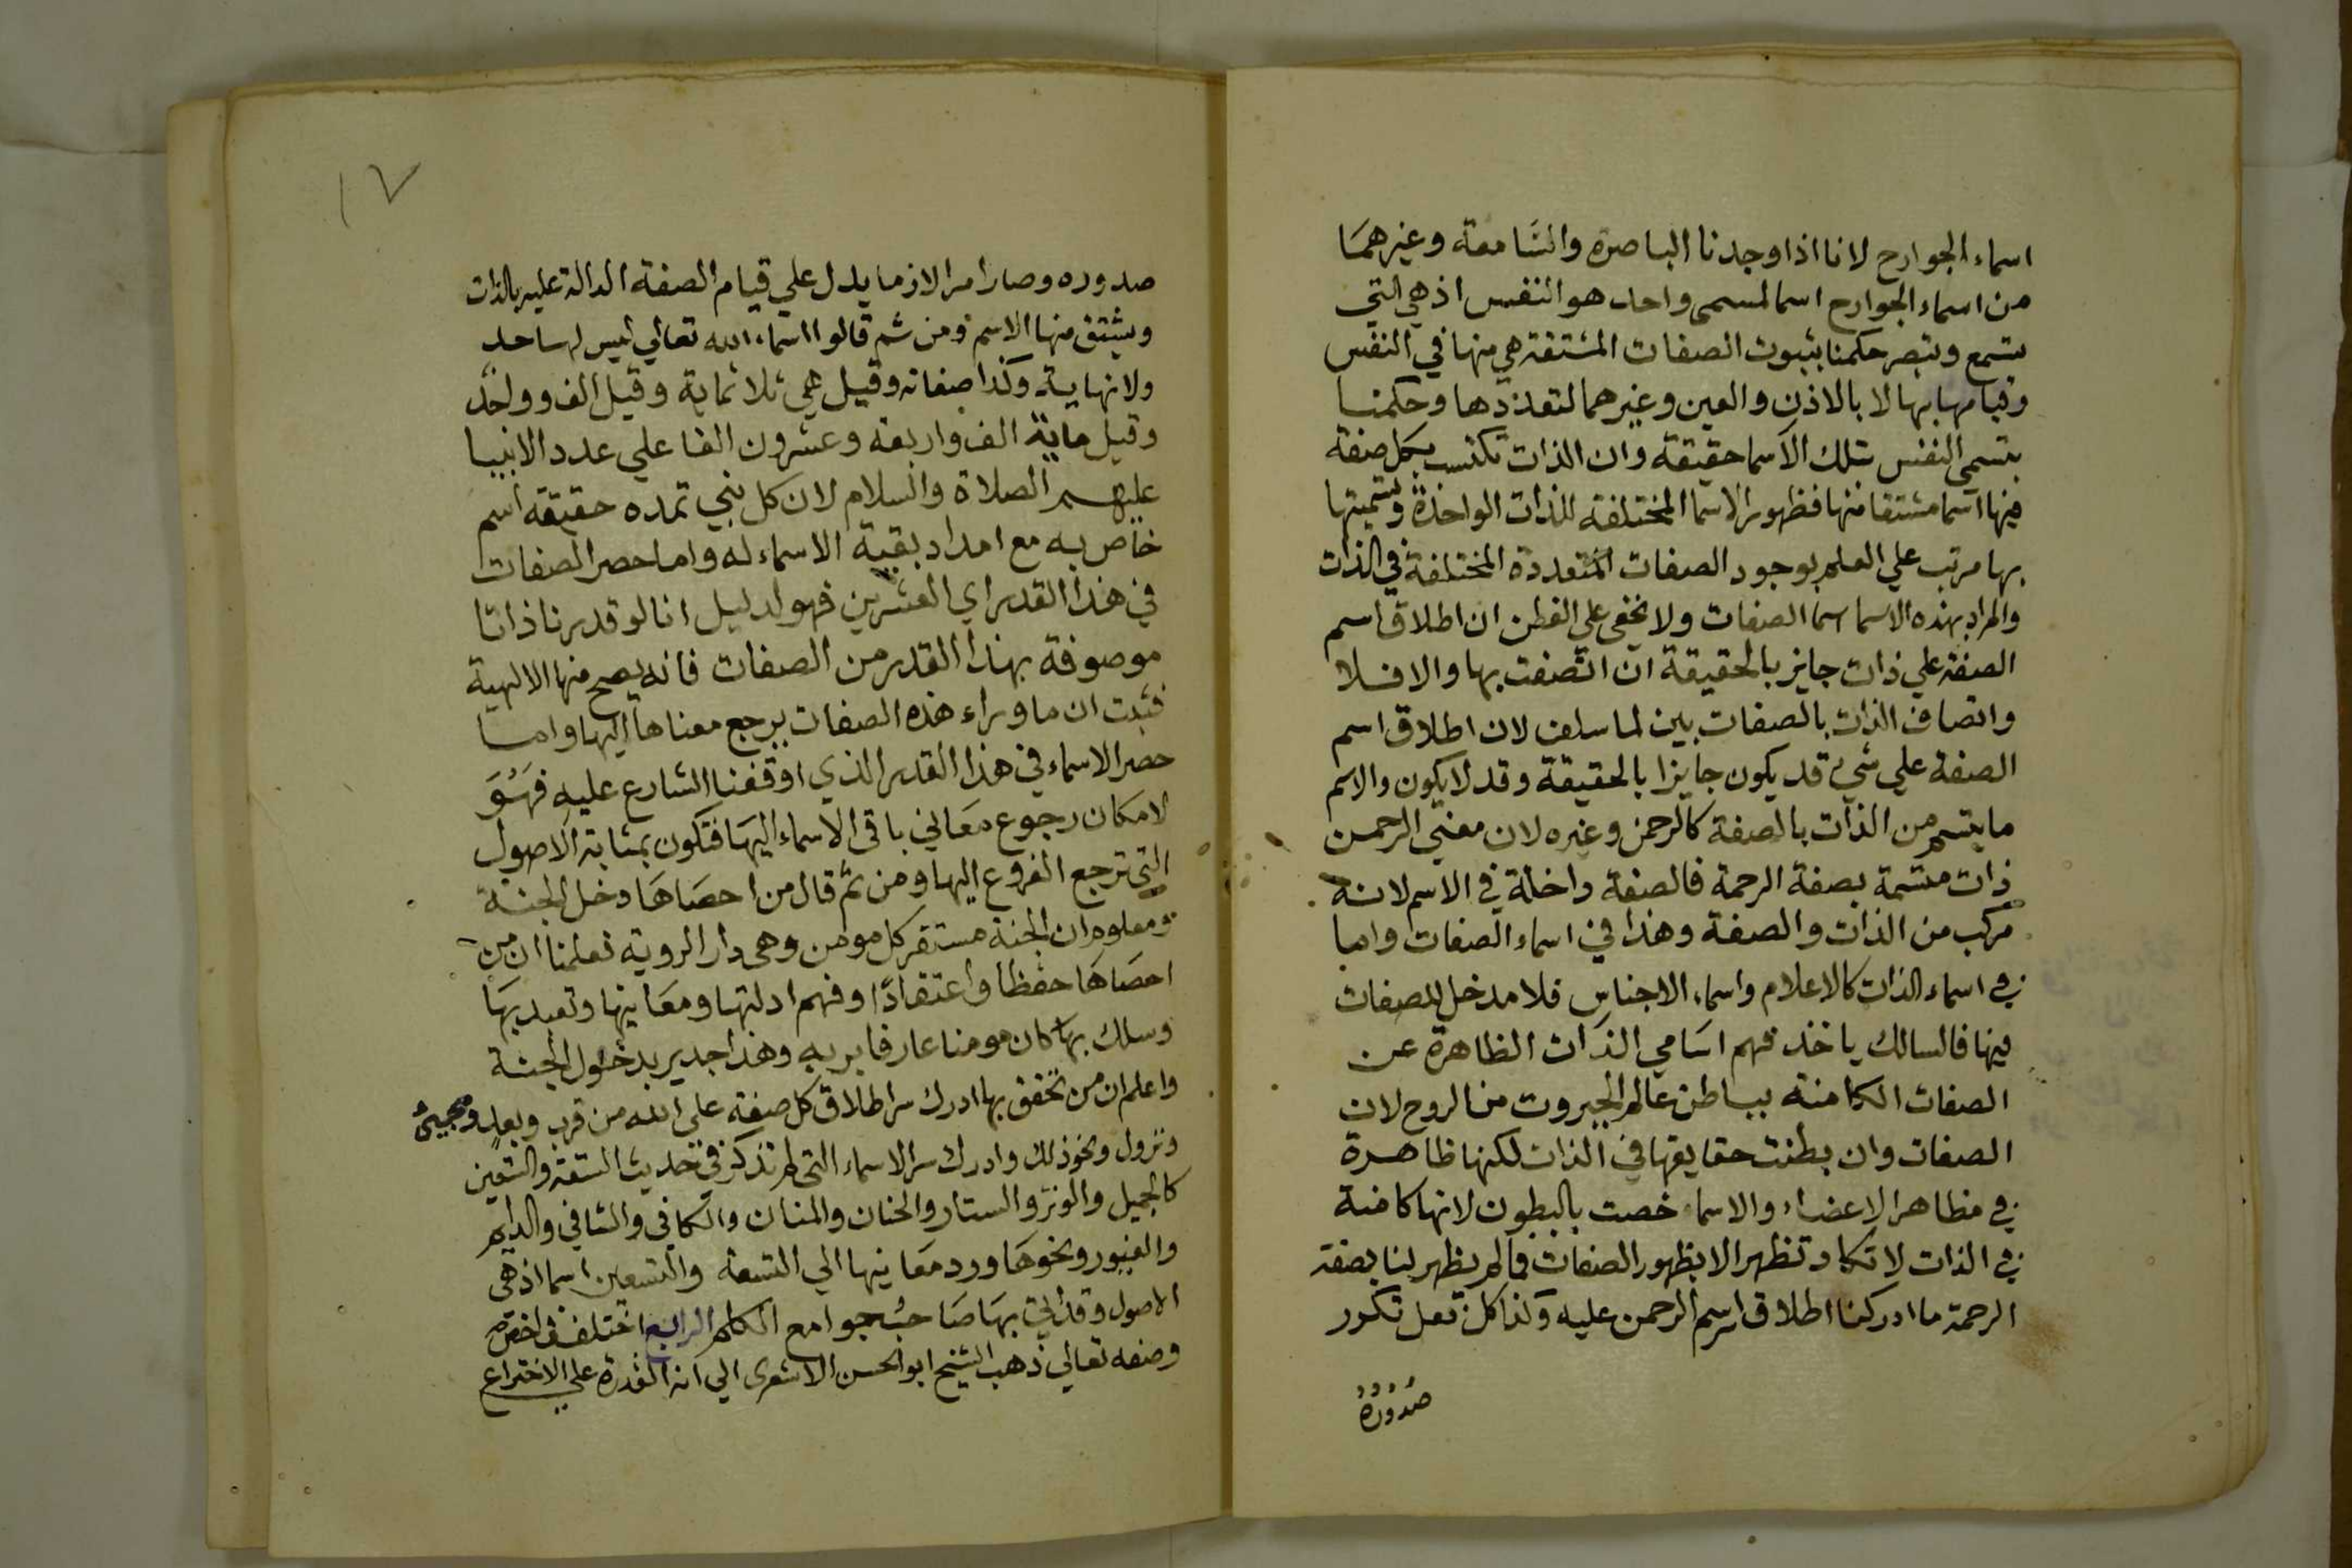 اسماء الجوارح لانا اذا وجدنا الباصرة والسَّامعة وغيرهمَا
من اسماء الجوارح اسما لمسمى واحد هو النفس اذ هي التي
تسمع وتبصر حكمنا بثبوت الصفات المشتقة هي منها في النفس
وقيامها بها لا بالاذن والعين وغيرهما لتعددها وحكمنا
بتسمي النفس بتلك الاسما حقيقة وان الذات تكتسب بكل صفة
فيها اسما مشتقا منها فظهور الاسما المختلفة للذات الواحدة وتسميتها
بها مرتب علي العلم بوجود الصفات المتعددة المختلفة في الذات
والمراد بهذه الاسما اسما الصفات ولا يخفي علي الفطن ان اطلاق اسم
الصفة علي ذات جايز بالحقيقة ان اتصفت بها والا فلا
واتصاف الذات بالصفات بين لما سلف لان اطلاق اسم
الصفة علي شيء قد يكون جايزا بالحقيقة وقد لا يكون والاسم
ما يتسم من الذات بالصفة كالرحمن وغيره لان معني الرحمن
ذات متسمة بصفة الرحمة فالصفة داخلة في الاسم لانه
مركب من الذات والصفة وهذا في اسماء الصفات واما
في اسماء الذات كالاعلام واسماء الاجناس فلا مدخل للصفات
فيها فالسالك ياخذ فهم اسَامي الذات الظاهرة عن
الصفات الكامنة بباطن عالم الجبروت من الروح لان
الصفات وان بطنت حقايقها في الذات لكنها ظاهرة
في مظاهر الاعضاء والاسماء خصت بالبطون لانها كامنة
في الذات لا تكاد تظهر الا بظهور الصفات فما لم يظهر لنا بصفة
الرحمة ما ادركنا اطلاق اسم الرحمن عليه وكذا كل فعل تكرر
صدوره
١٧
صدوره وصار امرا لازما يدل علي قيام الصفة الدالة عليه بالذات
ويشتق منها الاسم ومن ثم قالوا اسماء الله تعالي ليس لها حد
ولا نهاية وكذا صفاته وقيل هي ثلاثماية وقيل الف وواحد
وقيل ماية الف واربعة وعشرون الفا علي عدد الانبيا
عليهم الصلاة والسلام لان كل نبي تمده حقيقة اسم
خاص به مع امداد بقية الاسماء له واما حصر الصفات
في هذا القدر اي العشرين فهو لدليل انا لو قدرنا ذاتا
موصوفة بهذا القدر من الصفات فانه يصح منها الالهية
فثبت ان ما وراء هذه الصفات يرجع معناها اليها واما
حصر الاسماء في هذا القدر الذي اوقفنا الشارع عليه فهُوَ
لامكان رجوع معَاني باقي الاسماء اليهَا فتكون بمثابة الاصول
التي ترجع الفروع اليها ومن ثم قال من احصَاهَا دخل الجنة
ومعلوم ان الجنة مستقر كل مومن وهي دار الروية فعلمنا ان من
احصَاهَا حفظا واعتقادًا وفهم ادلتها ومعَانيها وتعبد بهَا
وسلك بها كان مومنا عارفا بربه وهذا جدير بدخول الجنة
واعلم ان من تحقق بها ادرك سر اطلاق كل صفة علي الله من قرب وبعد ومجيئ
ونزول ونحو ذلك وادرك سر الاسماء التي لم تذكر في حديث التسعة والتسعين
كالجميل والوتر والستار والحنان والمنان والكافي والشافي والدايم
والغيور ونحوهَا ورد معَانيها الي التسعة والتسعين اسما اذ هي
الاصول وقد اتي بهَا صَاحبُ جوامع الكلم الرابع اختلف في اخص
وصفه تعالي ذهب الشيخ ابو الحسن الاشعري الي انه القدرة علي الاختراع